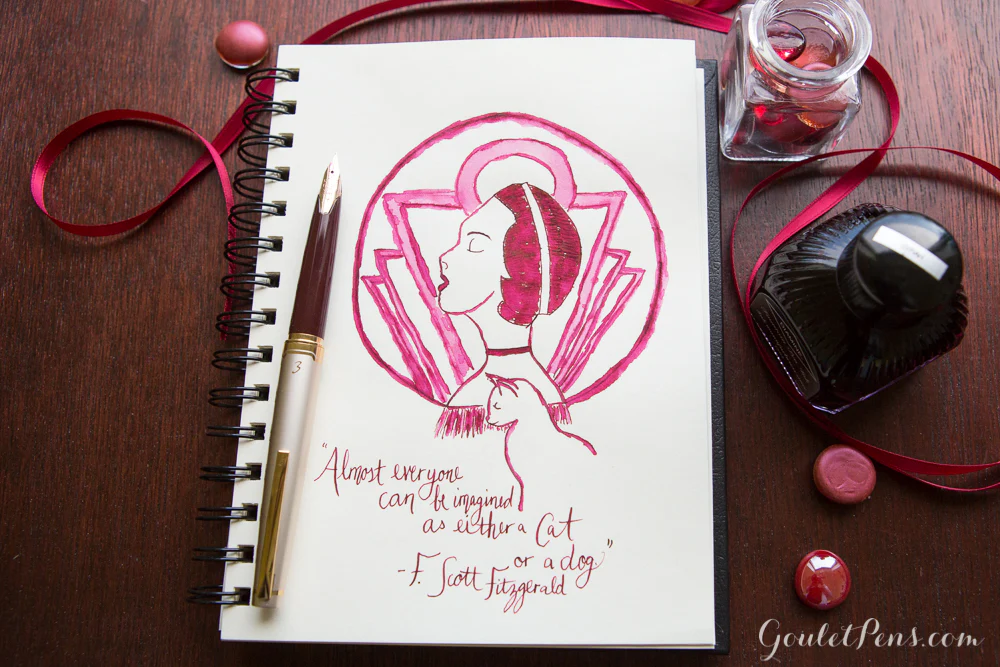 "Almost everyone
can be imagined
as either a Cat
or a dog."
-F. Scott Fitzgerald
3
GouletPens.com